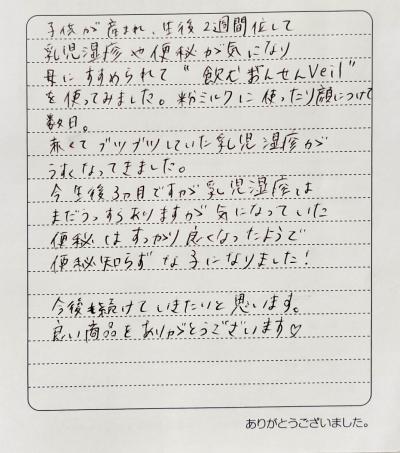 子供が産まれ、生後2週間位して
乳児湿疹や便秘が気になり
母にすすめられて“飲むおんせんVeil”
を使ってみました。粉ミルクに使ったり顔につけて
数日。
赤くてブツブツしていた乳児湿疹が
うすくなってきました。
今生後3ヵ月ですが乳児湿疹は
まだうっすらありますが気になっていた
便秘はすっかり良くなったようで
便秘知らずな子になりました！
今後も続けていきたいと思います。
良い商品をありがとうございます♡
ありがとうございました。